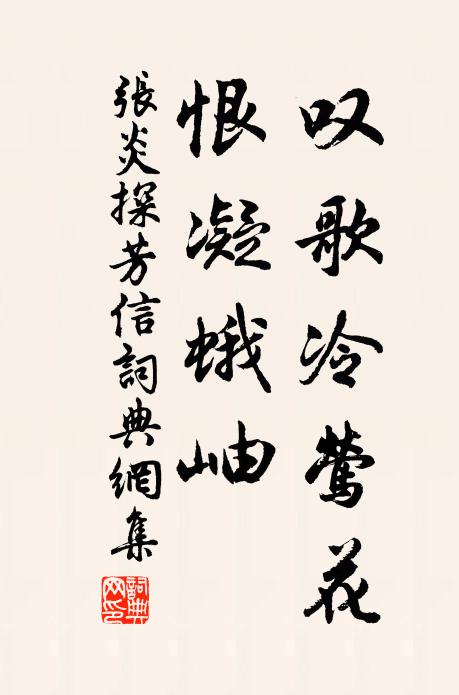 叹歌冷莺花
恨凝蛾岫
張炎探芳信詞典網集
詞典網印